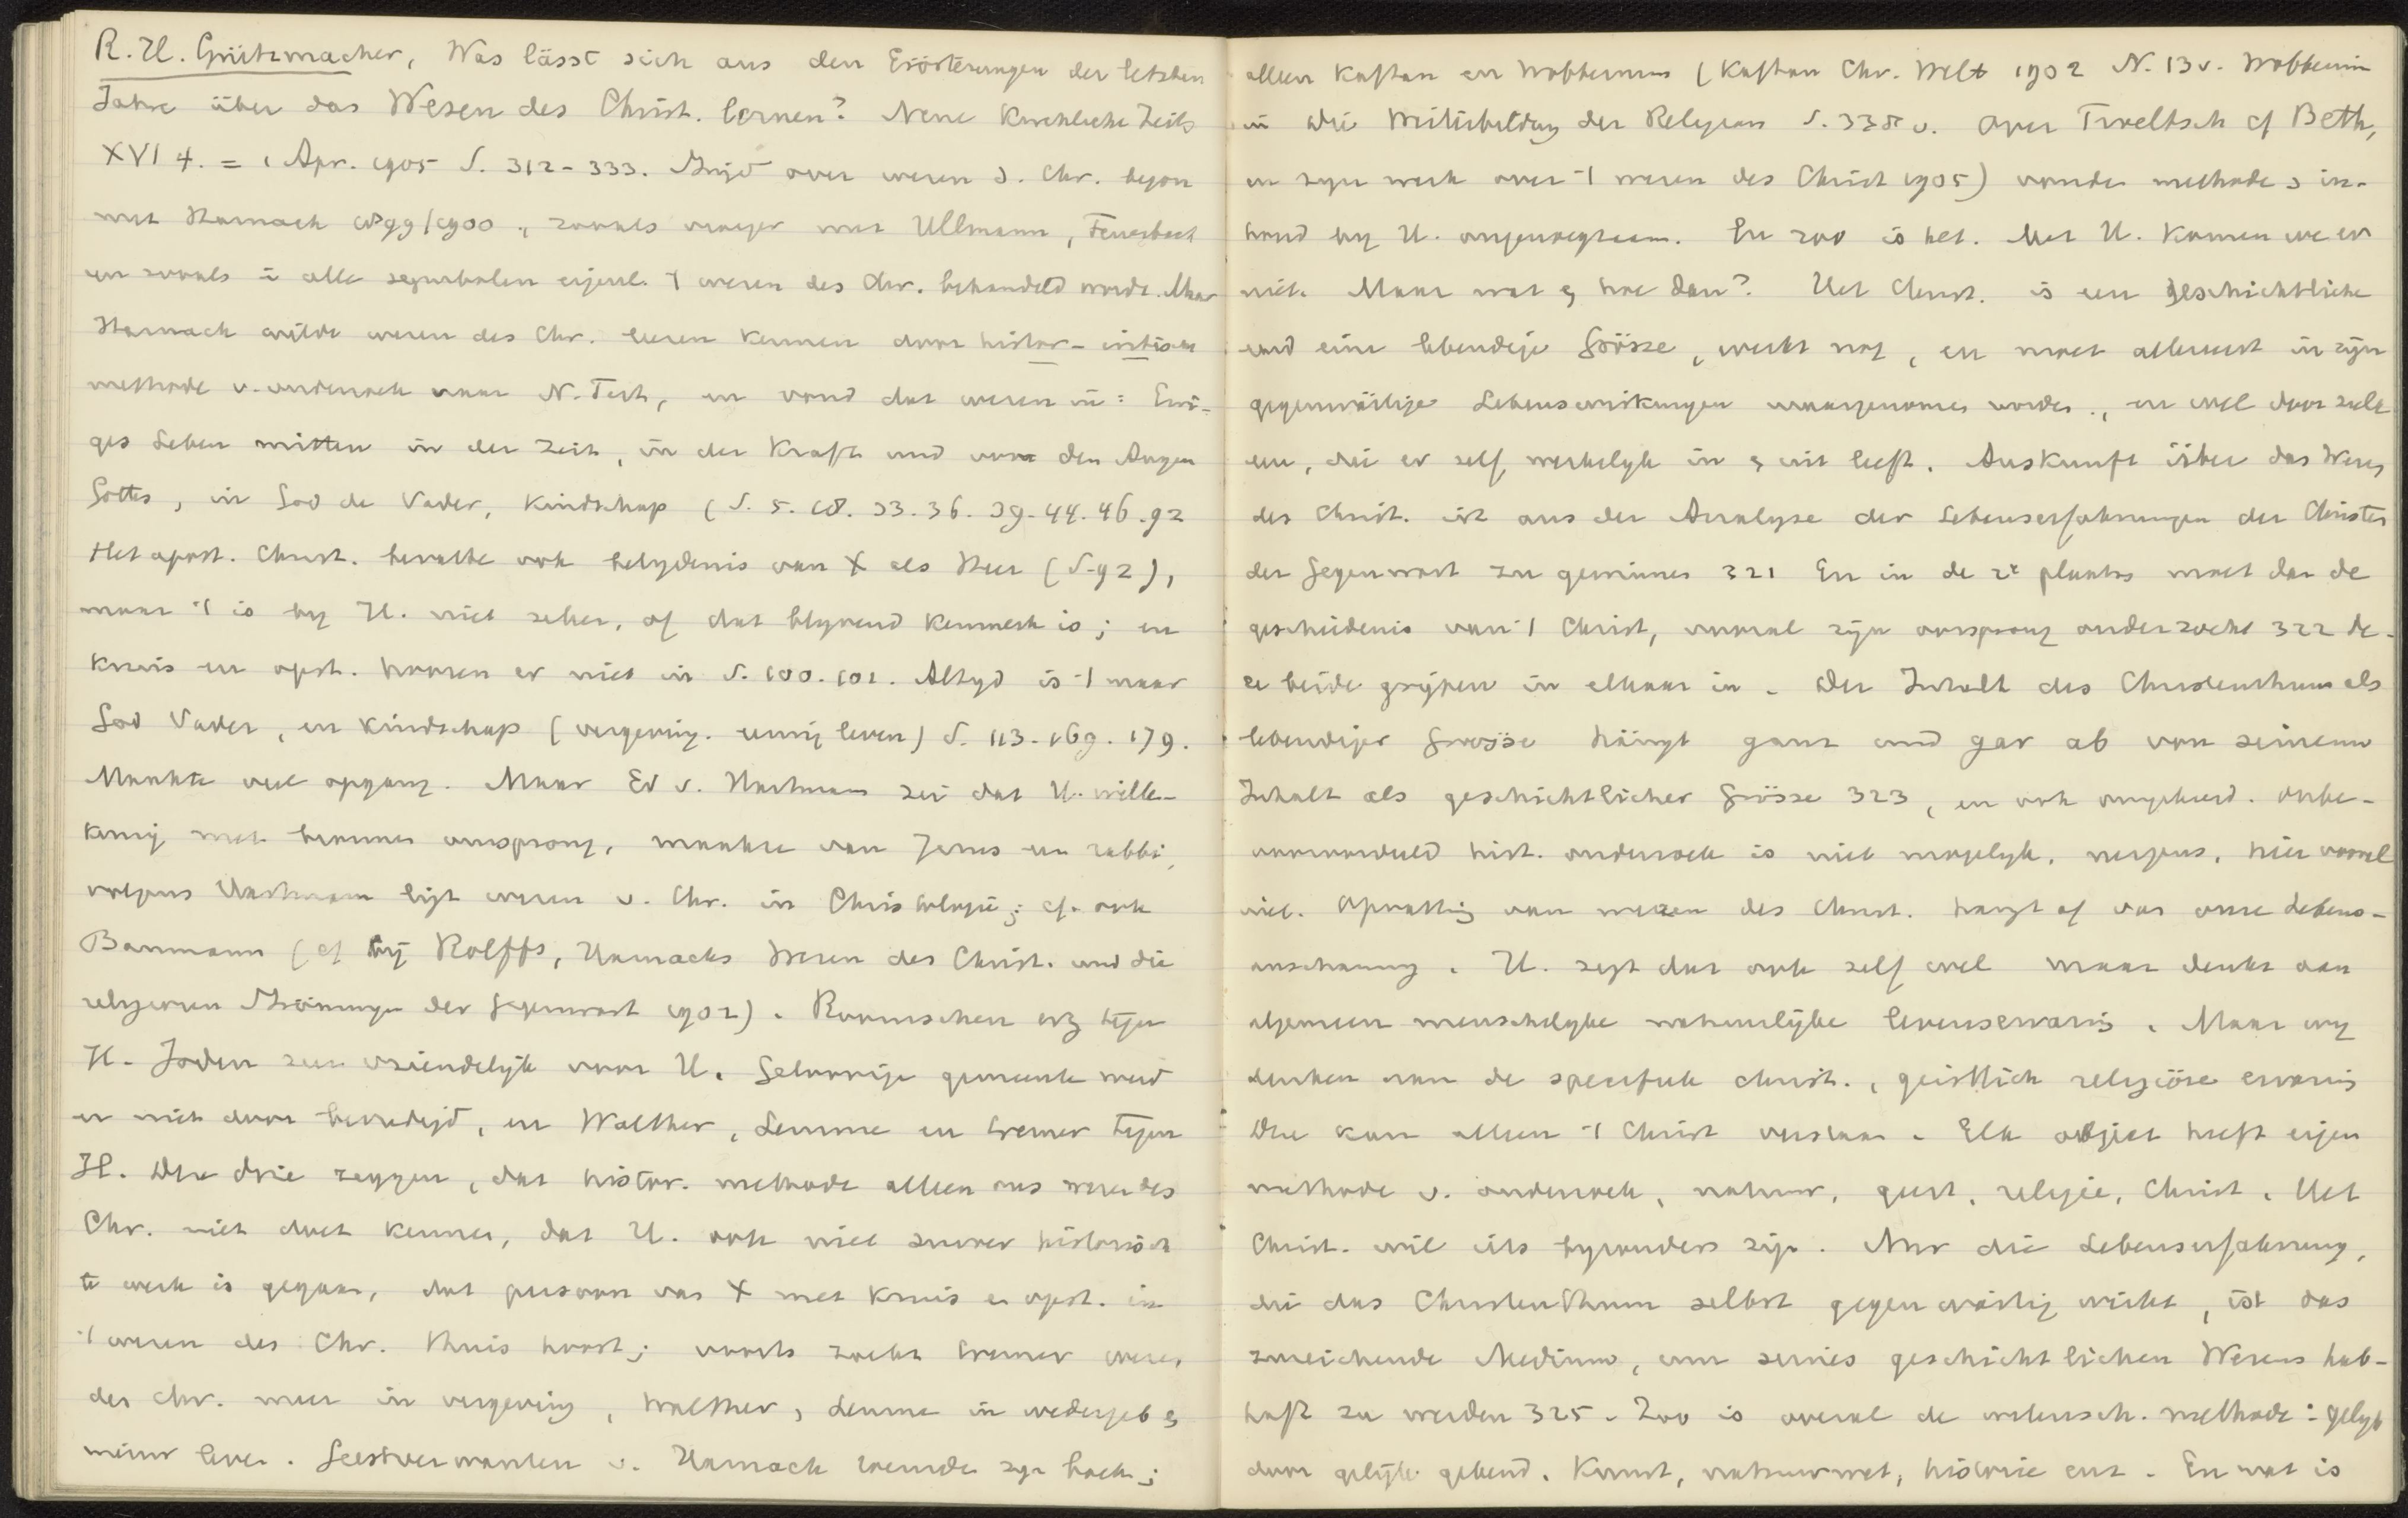 R. H. Grützmacher, Was lässt sich aus den Erörterungen der letzten
Jahre über das Wesen des Christ. lernen? Neue Kirchliche Zeits
XVI 4. = 1 Apr. 1905 S. 312-333. Strijd over wezen d. Chr. begon
met Harnack 1899/1900, zooals vroeger met Ullmann, Feuerbach
en zooals in alle symbolen eigenl. 't wezen des Chr. behandeld wordt. Maar
Harnack wilde wezen des Chr. leeren kennen door histor-critische
methode v. onderzoek naar N. Test, en vond dat wezen in: Ewi-
ges Leben mitten in der Zeit, in der Kraft und vor den Augen
Gottes, in God de Vader, kindschap (S. 5. 18. 33. 36. 39. 44. 46. 92
Het apost. Christ. bevatte ook belydenis van X als Heer (S. 92),
maar 't is by H. niet zeker, of dat blyvend kenmerk is; en
kruis en opst. hooren er niet in S. 100. 101. Altyd is 't maar
God Vader, en kindschap (vergeving. eeuwig leven) S. 113. 169. 179.
Maakte veel opgang. Maar Ed v. Hartmann zei dat H. wille-
keurig met bronnen omsprong, maakte van Jezus een rabbi,
volgens Hartmann ligt wezen v. Chr. in Christologie; cf. ook
Baumann (cf by Rolffs, Harnacks Wesen des Christ. und die
religiösen Strömungen der Gegenwart 1902). Roomschen erg tegen
H. Joden zeer vriendelijk voor H. Geloovige gemeente werd
er niet door bevredigd, en Walther, Lemme en Cremer tegen
H. Deze drie zeggen, dat histor. methode alleen ons wezen des
Chr. niet doet kennen, dat H. ook niet zuiver historisch
te werk is gegaan, dat persoon van X met kruis en opst. in
't wezen des Chr. thuis hoort; voorts zoekt Cremer wezen
des chr. meer in vergeving, Walther, Lemme in wedergeb &
nieuw leven. Geestverwanten v. Harnack vonden zyn boek;
alleen Kaftan en Wobbermin (Kaftan Chr. Welt 1902 N. 13 v. Wobbermin
in Die Weiterbildung der Religion S. 338 v. Over Troeltsch cf Beth,
in zyn werk over 't wezen des Christ 1905) vonden methode & in-
houd by H. ongenoegzaam. En zoo is het. Met H. komen we er
niet. Maar wat & hoe dan? Het Christ. is een geschichtliche
und eine lebendige Grösze, werkt nog, en moet allereerst in zyn
gegenwärtige Lebenswirkungen waargenomen worden, en wel door zulk
een, die er zelf werkelyk in & uit leeft. Auskunft über das Wesen
des Christ. ist aus der Analyse der Lebenserfahrungen der Christen
der Gegenwart zu gewinnen 321 En in de 2e plaats moet dan de
geschiedenis van 't Christ, vooral zyn oorsprong onderzocht 322 de-
ze beide grypen in elkaar in. Der Inhalt des Christenthums als
lebendiger Grösse hängt ganz und gar ab von seinem
Inhalt als geschichtlicher Grösze 323, en ook omgekeerd. Onbe-
vooroordeeld hist. onderzoek is niet mogelyk, nergens, hier vooral
niet. Opvatting van wezen des Christ. hangt af van onze Lebens-
anschauung. H. zegt dat ook zelf wel maar denkt aan
algemeen menschelyke natuurlijke levenservaring. Maar wy
denken aan de specifiek christ., geistlich religiöse ervaring
Die kan alleen 't Christ verstaan. Elk object heeft eigen
methode v. onderzoek, natuur, geest, religie, Christ. Het
Christ. wil iets byzonders zijn. Nur die Lebenserfahrung,
die das Christenthum selbst gegenwärtig wirkt, ist das
zureichende Medium, um seines geschichtlichen Wesens hab-
haft zu werden 325. Zoo is overal de wetensch. methode: gelyk
door gelijk gekend. Kunst, natuurwet, historie enz. En wat is